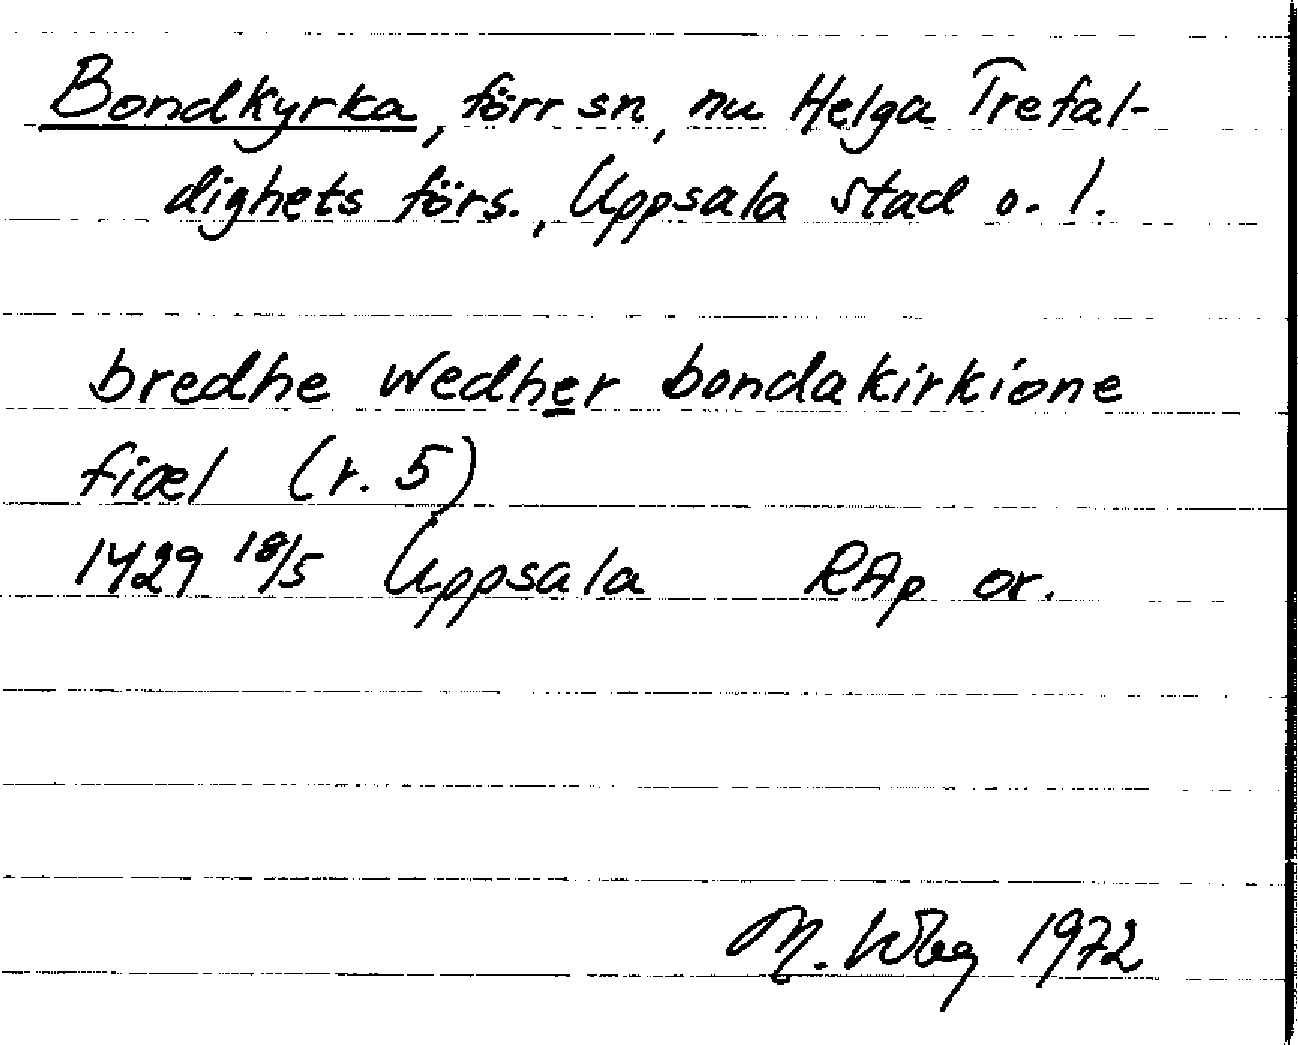 Bondkyrka, förr sn, nu Helga Trefal-
dighets förs., Uppsala stad o. l.
bredhe wedher bondakirkione
fiæl (r. 5)
1429 18/5 Uppsala RAp or.
M. Wbg 1972